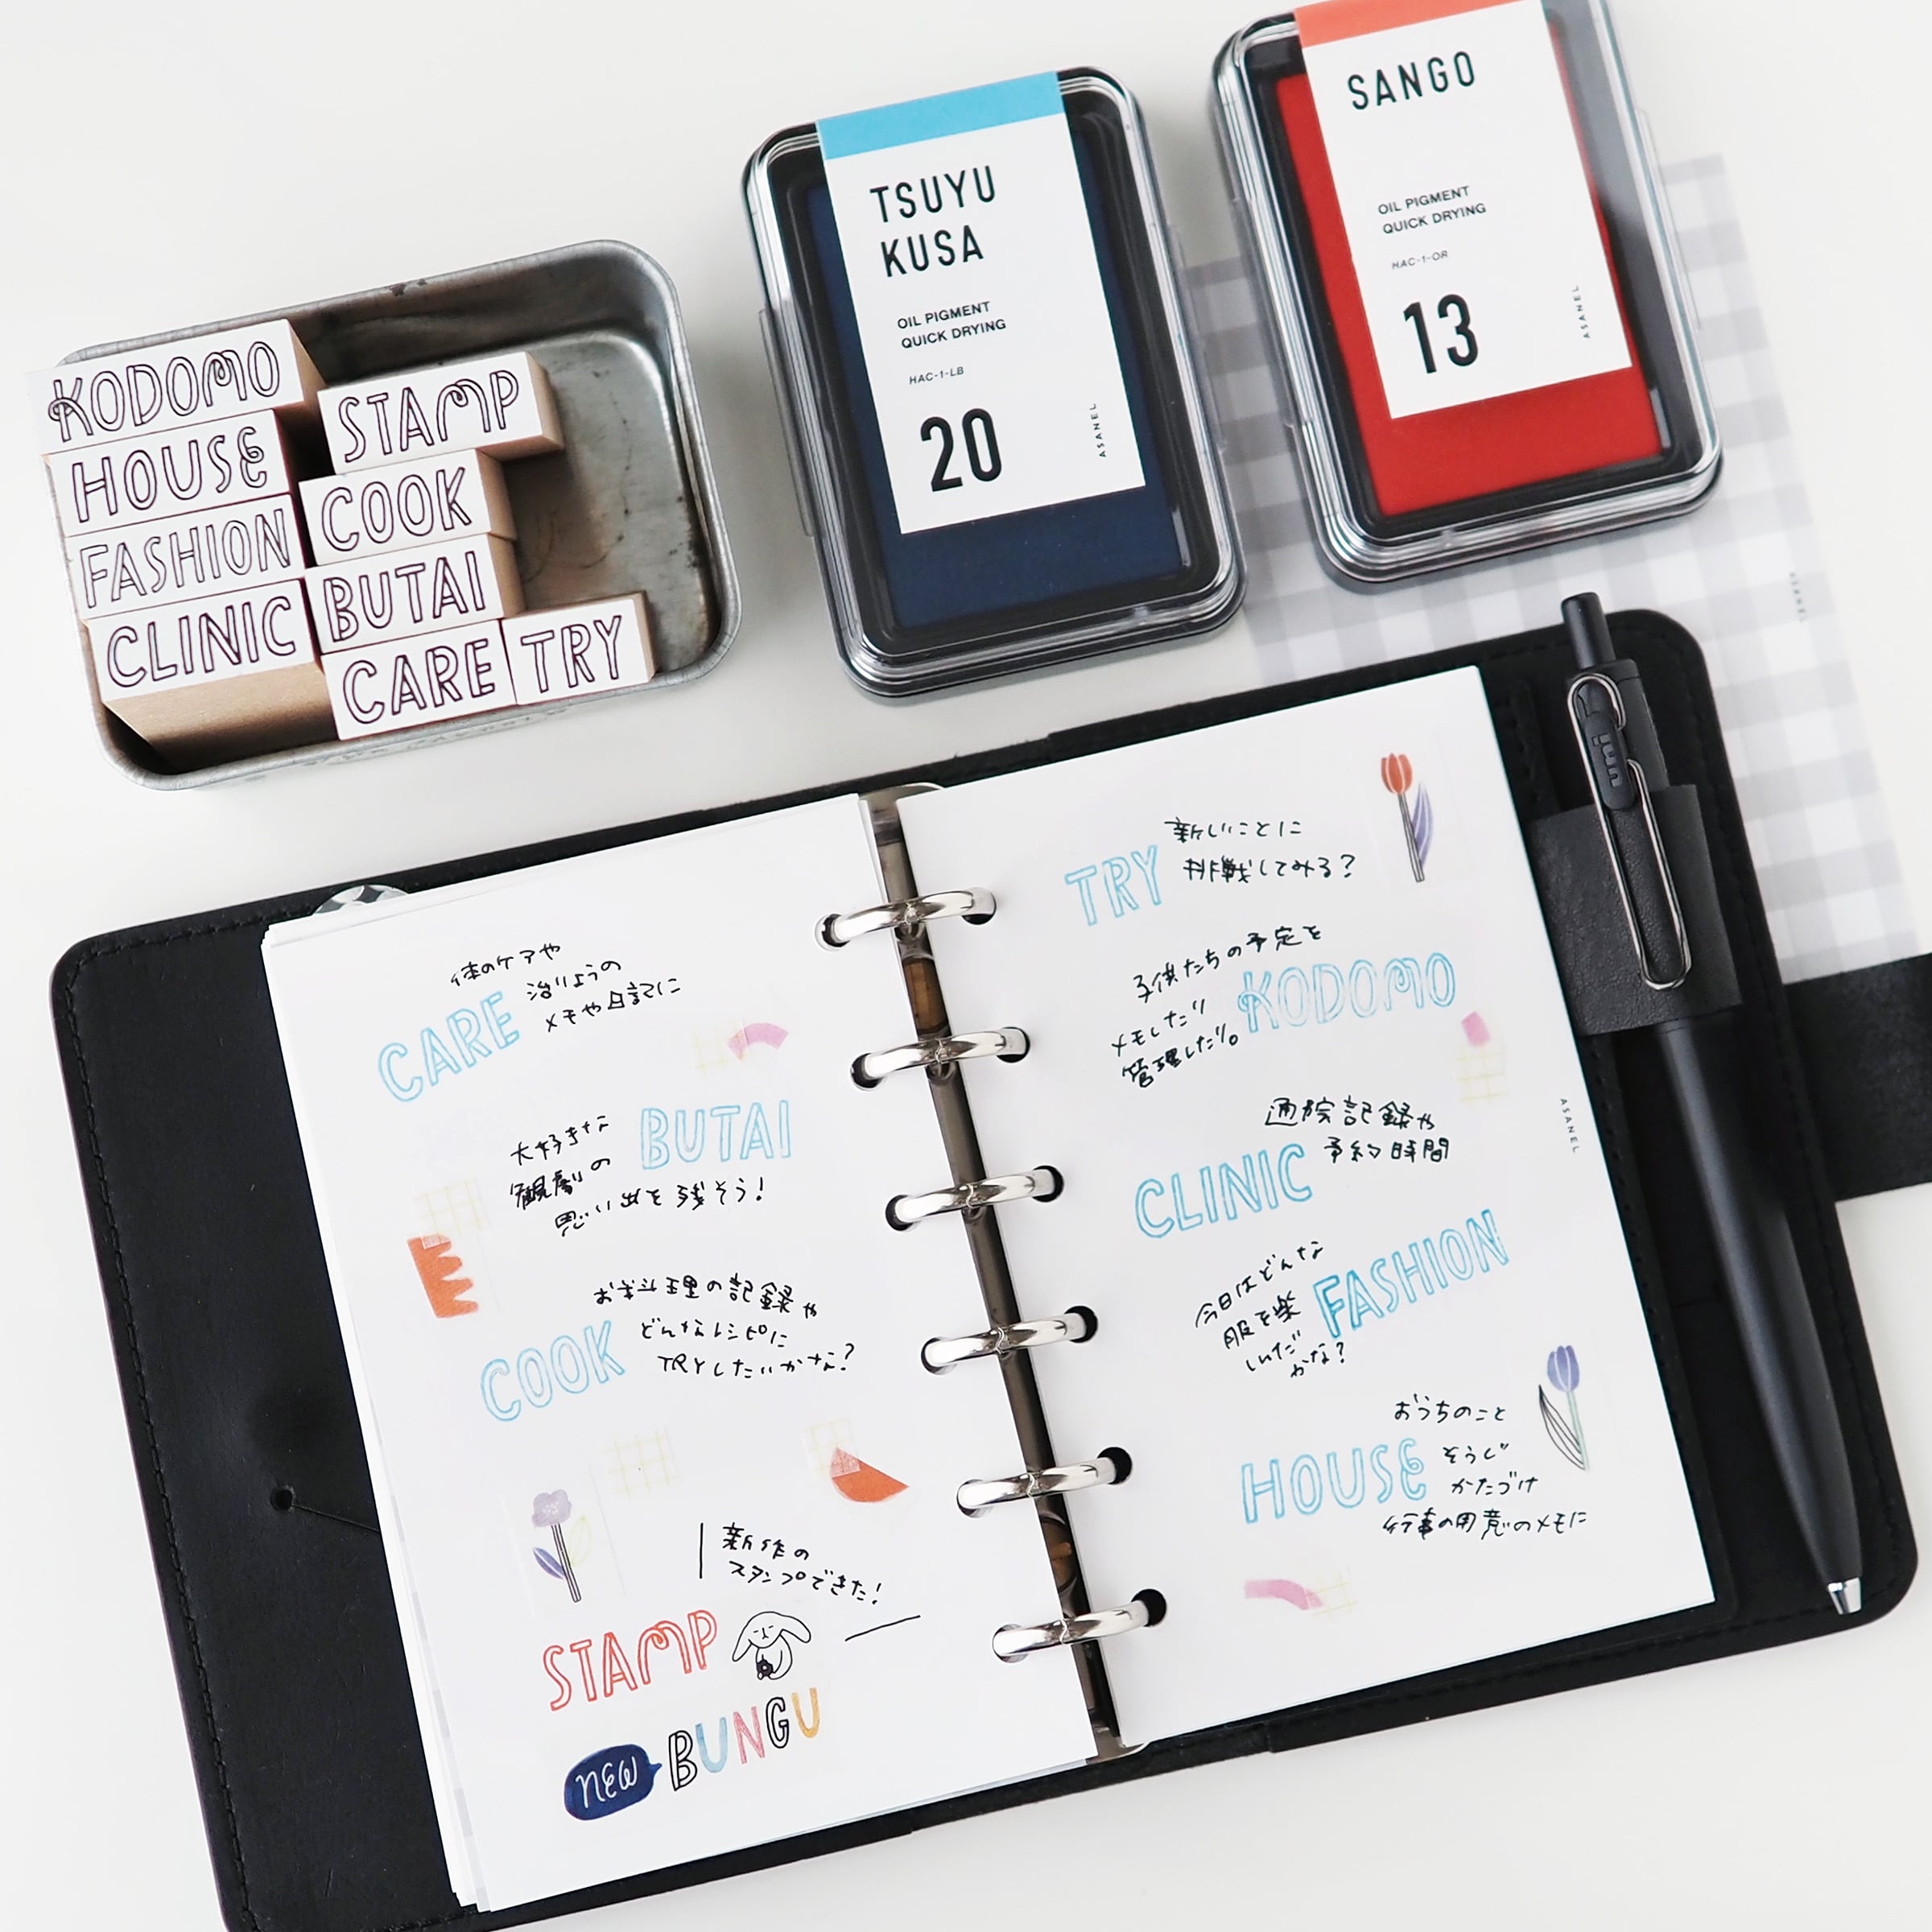 KODOMO
HOUSE
FASHION
CLINIC
STAMP
COOK
BUTAI
CARE
TRY
TSUYU
KUSA
OIL PIGMENT
QUICK DRYING
HAC-1-LB
20
ASANEL
SANGO
OIL PIGMENT
QUICK DRYING
HAC-1-OR
13
ASANEL
ASANEL
uni
体のケアや
治りょうの
メモや日記に
CARE
大好きな
観劇の
思い出を残そう!
BUTAI
お料理の記録や
どんなレシピに
TRYしたいかな?
COOK
新作の
スタンプできた!
STAMP
new
BUNGU
新しいことに
挑戦してみる?
TRY
子供たちの予定を
メモしたり
管理したり。
KODOMO
通院記録や
予約時間
CLINIC
今日はどんな
服を楽
しんだ
かな?
FASHION
おうちのこと
そうじ
かたづけ
行事の用意のメモに
HOUSE
ASANEL